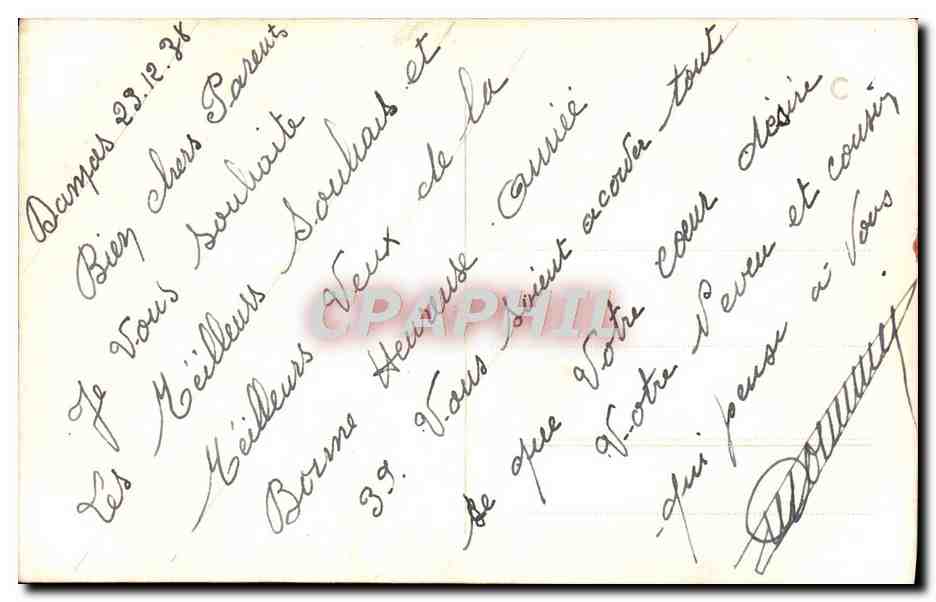 Banyas 23.12.38
Bien chers Parents
Je Vous souhaite
Les Méilleurs Souhais et
Méilleurs Veux de la
Bonne Heureuse année
39. Vous soient acorder tout
se que Votre cœur désire
Votre Neveu et cousin
qui pense à Vous
CPAPHIL